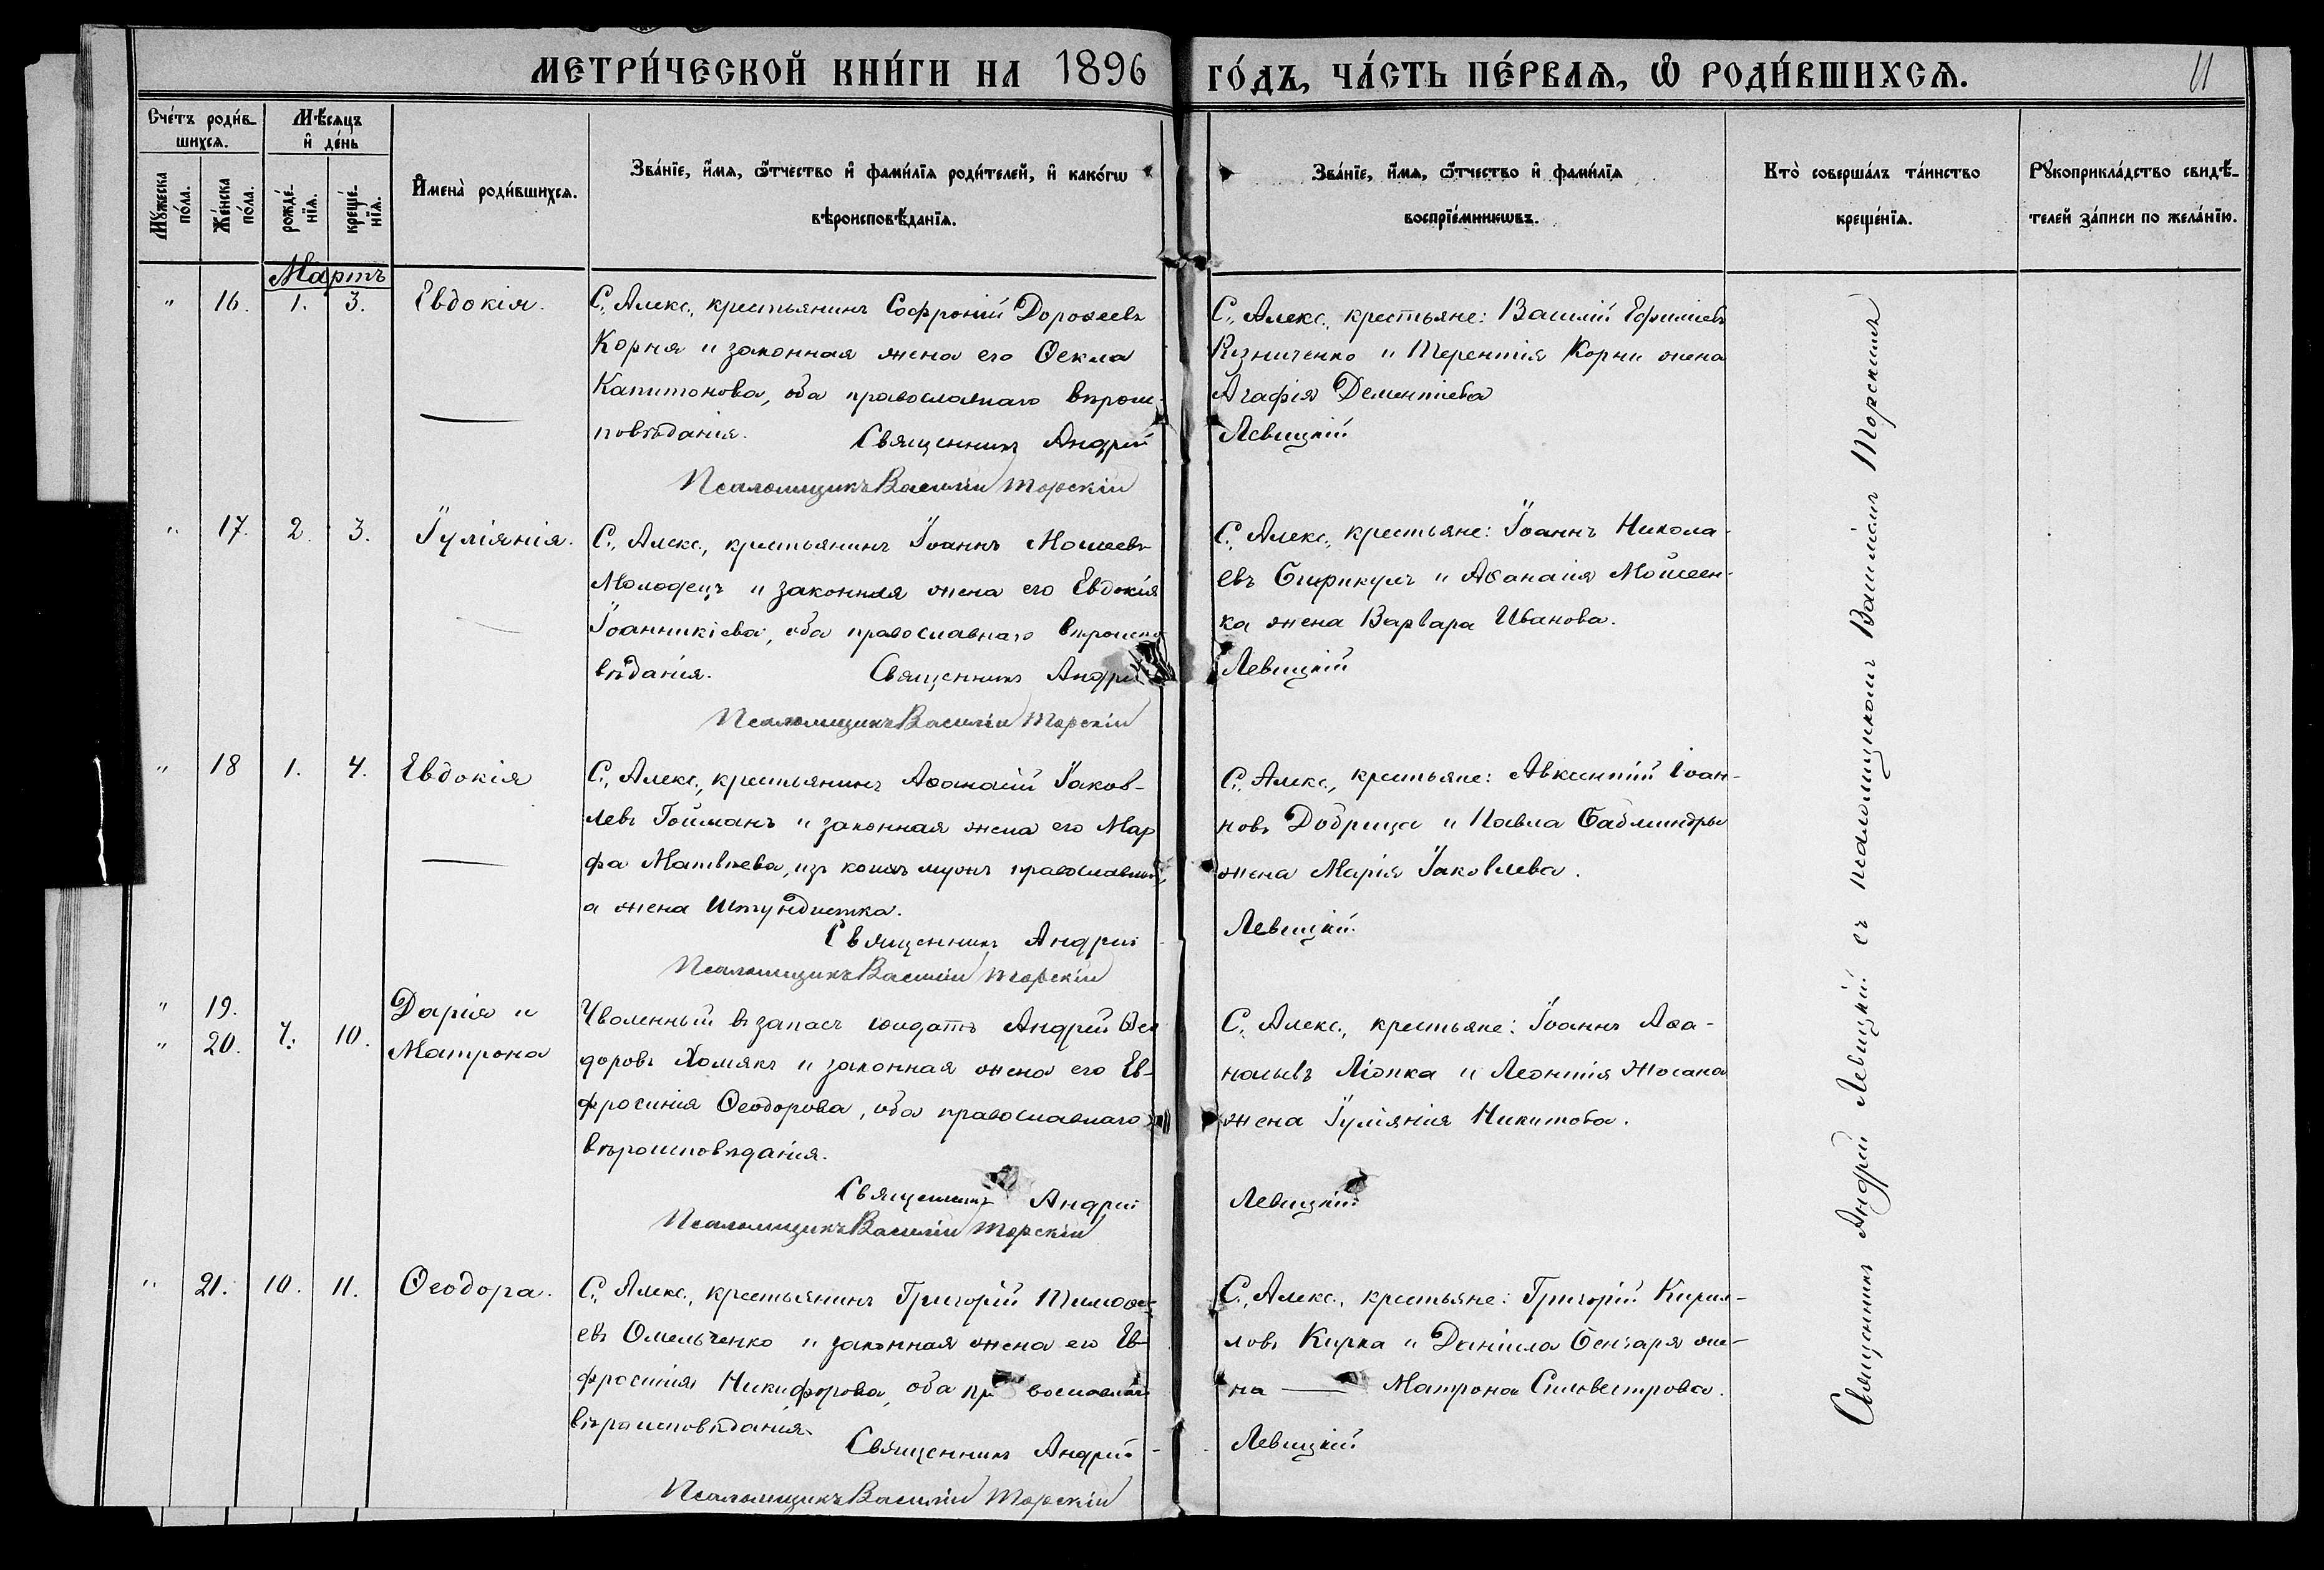 МЕТРИ́ЧЕСКОЙ КНИ́ГИ НА 1896 ГО́ДЪ, ЧА́СТЬ ПЕ́РВАѦ, Ѽ РОДИ́ВШИХСѦ.
11
Сче́тъ роди́в-
шихсѧ.
Мѣ́сѧцъ
и҆ де́нь
Мꙋ́жеска
по́ла.
Же́нска
по́ла.
рожде́-
нїѧ.
креще́-
нїѧ.
И҆мена̀ роди́вшихсѧ.
Зва́нїе, и҆́мѧ, ѻ҆́тчество и҆ фами́лїѧ роди́телей, и҆ како́гѡ
вѣроисповѣ́данїѧ.
Зва́нїе, и҆́мѧ, ѻ҆́тчество и҆ фами́лїѧ
воспрїе́мникѡвъ.
Кто̀ соверша́лъ та́инство
креще́нїѧ.
Рꙋкоприкла́дство свидѣ́-
телей за́писи по жела́нїю.
Мартъ
" 16. 1. 3. Евдокія.
С. Алекс., крестьянинъ Софроній Дороѳеевъ
Корня и законная жена его Ѳекла
Капитонова, оба православнаго вѣроис-
повѣданія. Священникъ Андрей
Псаломщикъ Василій Торскій
С. Алекс., крестьяне: Василій Ефиміевъ
Рѣзниченко и Терентія Корни жена
Агафія Дементіева
Левицкій
" 17. 2. 3. Іуліянія.
С. Алекс., крестьянинъ Іоаннъ Моисеевъ
Молодецъ и законная жена его Евдокія
Іоанникіева, оба православнаго вѣроиспо-
вѣданія. Священникъ Андрей
Псаломщикъ Василій Торскій
С. Алекс., крестьяне: Іоаннъ Никола-
евъ и Аѳанасія Мойсеен-
ка жена Варвара Иванова.
Левицкій
" 18 1. 4. Евдокія
С. Алекс., крестьянинъ Аѳанасій Іаков-
левъ Гойманъ и законная жена его Мар
фа Матвѣева, изъ коихъ мужъ православный,
а жена Штундистка.
Священникъ Андрей
Псаломщикъ Василій Торскій
С. Алекс., крестьяне: Авксентій Іоан-
новъ Добрица и Павла
жена Марія Іаковлева.
Левицкій
" 19.
" 20. 7. 10.
Дарія и
Матрона
Уволенный въ запасъ солдатъ Андрей Ѳео
доровъ Хомякъ и законная жена его Ев-
фросинія Ѳеодорова, оба православнаго
вѣроисповѣданія.
Священникъ Андрей
Псаломщикъ Василій Торскій
С. Алекс., крестьяне: Іоаннъ Аѳа-
насьевъ и Леонтія Жосана
жена Іуліянія Никитова.
Левицкій
" 21. 10. 11. Ѳеодора.
С. Алекс., крестьянинъ Григорій Тимоѳе-
евъ Омельченко и законная жена его Ев-
фросинія Никифорова, оба православнаго
вѣроисповѣданія. Священникъ Андрей
Псаломщикъ Василій Торскій
С. Алекс., крестьяне: Григорій Кирил-
ловъ Кирка и Даніила жe-
на — Матрона Силвестрова.
Левицкій
Священникъ Андрей Левицкій съ псаломщикомъ Василіемъ Торскимъ